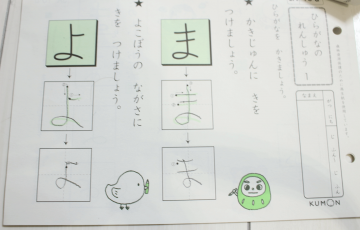 ひらがなの
れんしゅう 1
ひらがなを かきましょう。
★ かきじゅんに きを
つけましょう。
ま
ま
ま
★ よこぼうの ながさに
きを つけましょう。
よ
よ
よ
KUMON